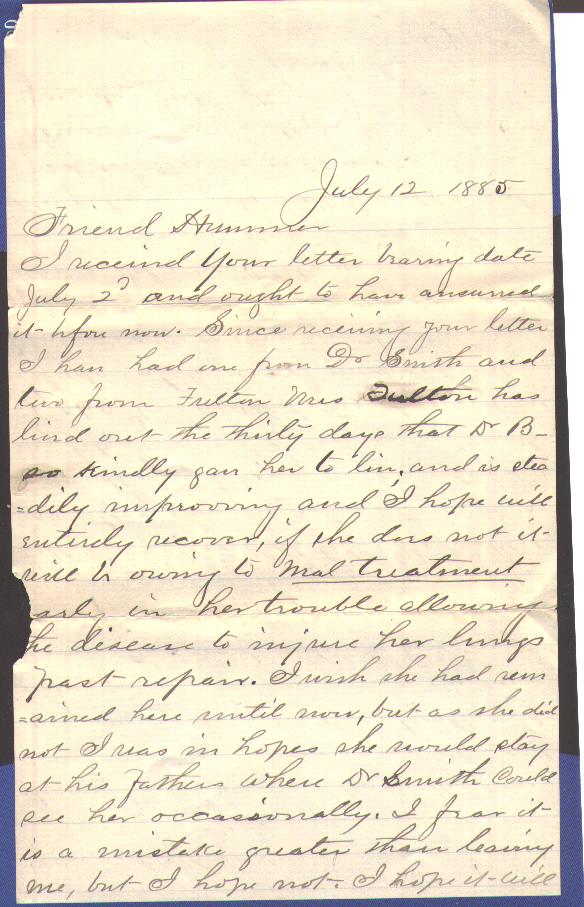 July 12 1885
Friend Hummer
I receivd Your letter bearing date
July 2d and ought to have answered
it before now. Since receiving your letter
I hav had one from Dr Smith and
two from Fulton Mrs Fulton has
livd out the thirty days that Dr B-
so kindly gav her to liv, and is stea
=dily improoving and I hope will
entirely recover, if she does not it
will be owing to Mal treatment
early in her trouble allowing
the disease to injure her lungs
past repair. I wish she had rem
=ained here until now, but as she did
not I was in hopes she would stay
at his Fathers where Dr Smith could
see her occasionally. I fear it
is a mistake greater than leaving
me, but I hope not. I hope it will